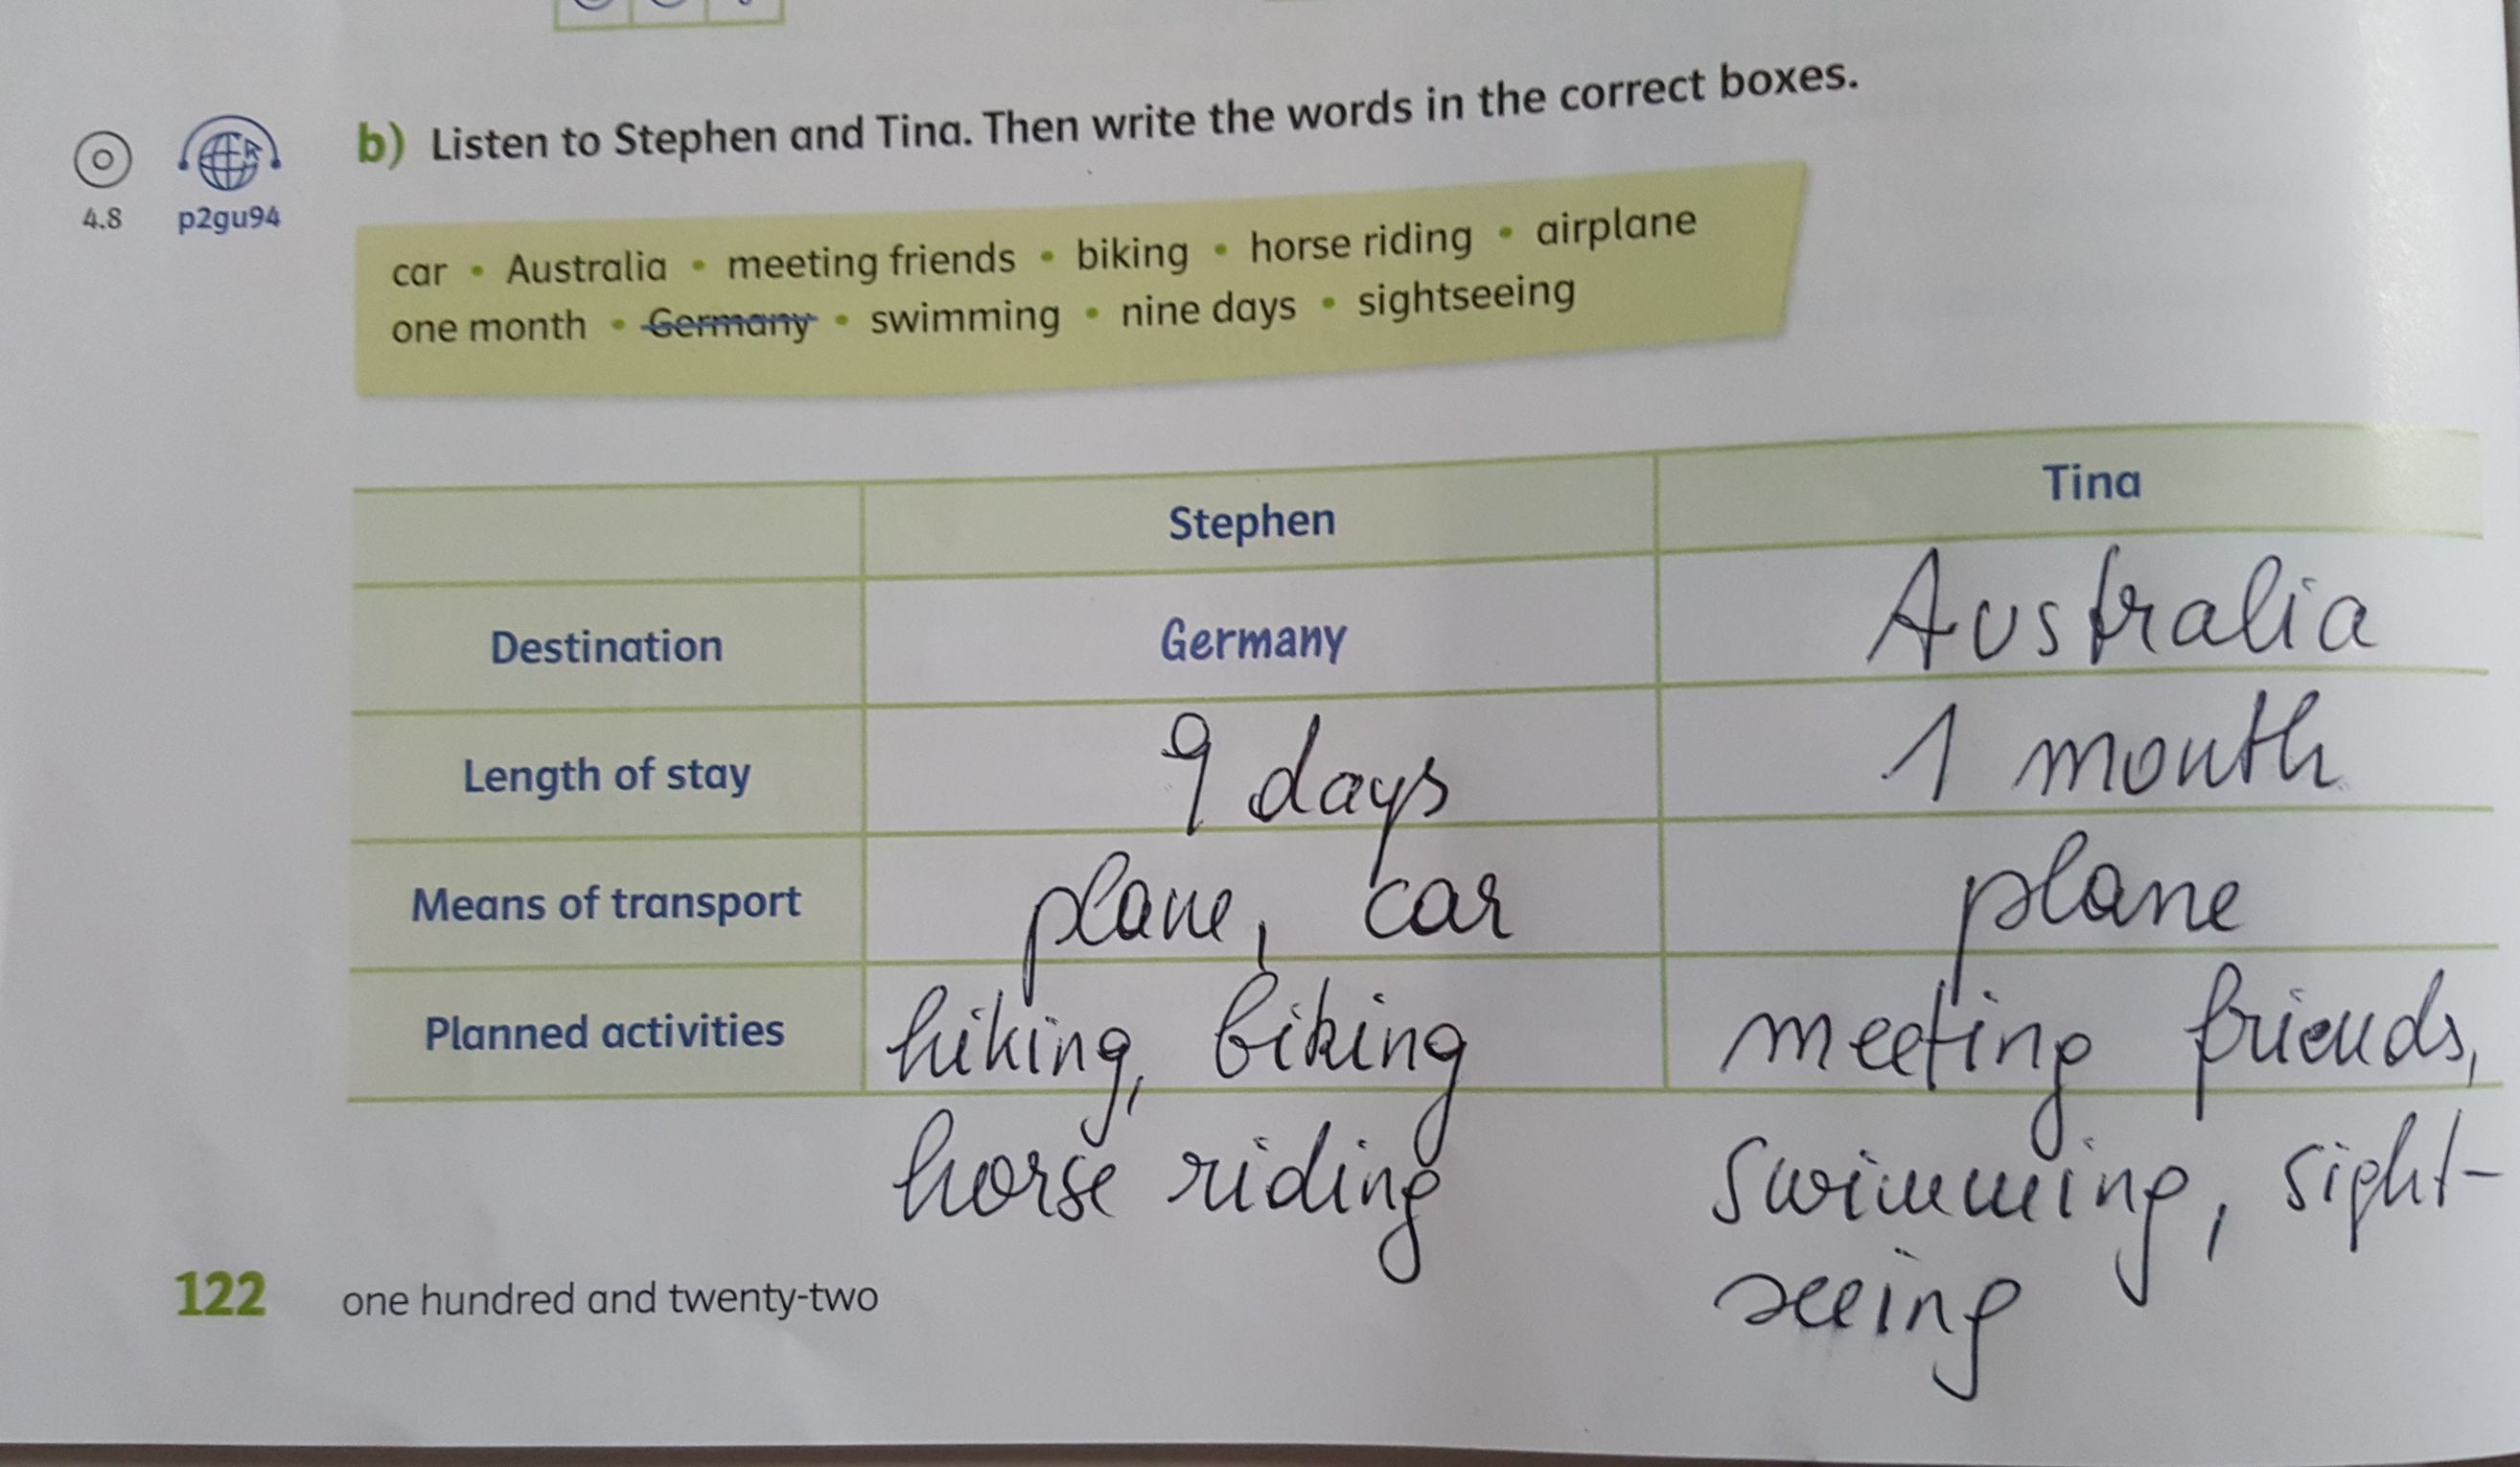 b) Listen to Stephen and Tina. Then write the words in the correct boxes.
4.8 p2gu94
car • Australia • meeting friends • biking • horse riding • airplane
one month • Germany • swimming • nine days • sightseeing
Stephen Tina
Destination Germany Australia
Length of stay 9 days 1 month
Means of transport plane, car plane
Planned activities hiking, biking meeting friends,
horse riding swimming, sight-
seeing
122 one hundred and twenty-two